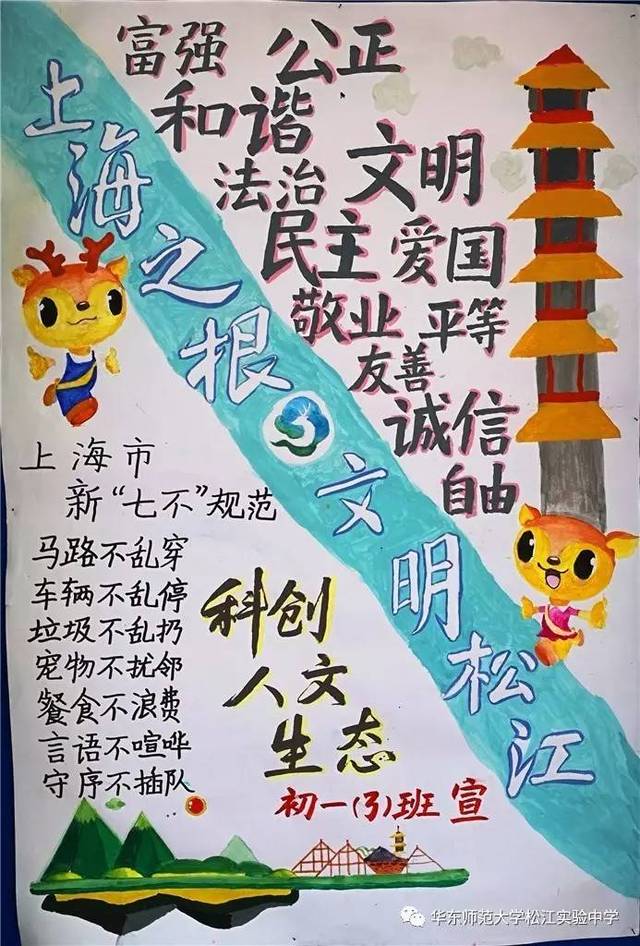 富强 公正
和谐
法治 文明
民主 爱国
敬业 平等
友善
诚信
自由
上海之根 文明松江
上海市
新“七不”规范
马路不乱穿
车辆不乱停
垃圾不乱扔
宠物不扰邻
餐食不浪费
言语不喧哗
守序不插队
科创
人文
生态
初一(3)班 宣
华东师范大学松江实验中学